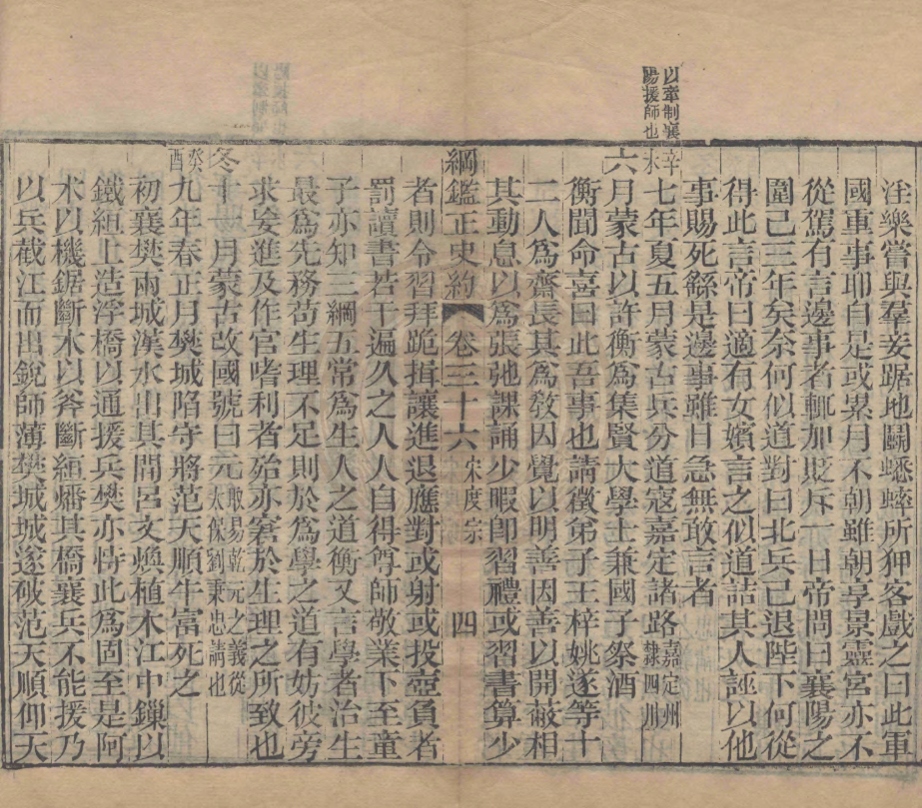 淫樂嘗與羣妾踞地鬭蟋蟀所狎客戲之曰此軍
國重事耶自是或累月不朝雖朝享景靈宮亦不
從駕有言邊事者輒加貶斥一日帝問曰襄陽之
圍已三年矣奈何似道對曰北兵已退陛下何從
得此言帝曰適有女嬪言之似道詰其人誣以他
事賜死繇是邊事雖日急無敢言者
以牽制襄
陽援師也
辛
未七年夏五月蒙古兵分道寇嘉定諸路嘉定州
隸四川
六月蒙古以許衡爲集賢大學士兼國子祭酒
衡聞命喜曰此吾事也請徵弟子王梓姚遂等十
二人爲齋長其爲敎因覺以明善因善以開蔽相
其動息以爲張弛課誦少暇卽習禮或習書算少
綱鑑正史約 卷三十六 宋度宗 四
者則令習拜跪揖讓進退應對或射或投壺負者
罰讀書若干遍久之人人自得尊師敬業下至童
子亦知三綱五常爲生人之道衡又言學者治生
最爲先務苟生理不足則於爲學之道有妨彼旁
求妄進及作官嗜利者殆亦窘於生理之所致也
冬十一月蒙古改國號曰元取易乾元之義從
太保劉秉忠請也
癸
酉九年春正月樊城陷守將范天順牛富死之
初襄樊兩城漢水出其間呂文煥植木江中鏁以
鐵絙上造浮橋以通援兵樊亦恃此爲固至是阿
朮以機鋸斷木以斧斷絙燔其橋襄兵不能援乃
以兵截江而出銳師薄樊城城遂破范天順仰天